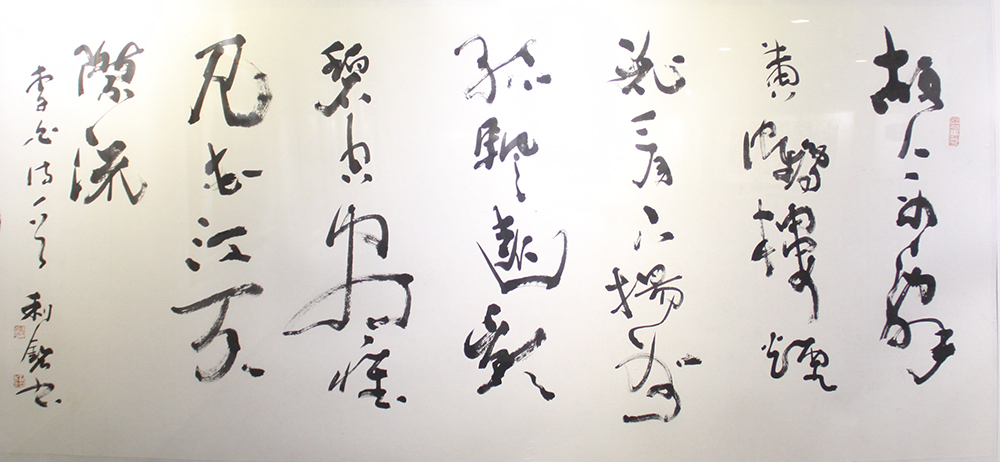 故人西辭
黃鶴樓煙
花三月下揚州
孤帆遠影
碧空盡惟
見長江天
際流
李白诗一首 利銘书